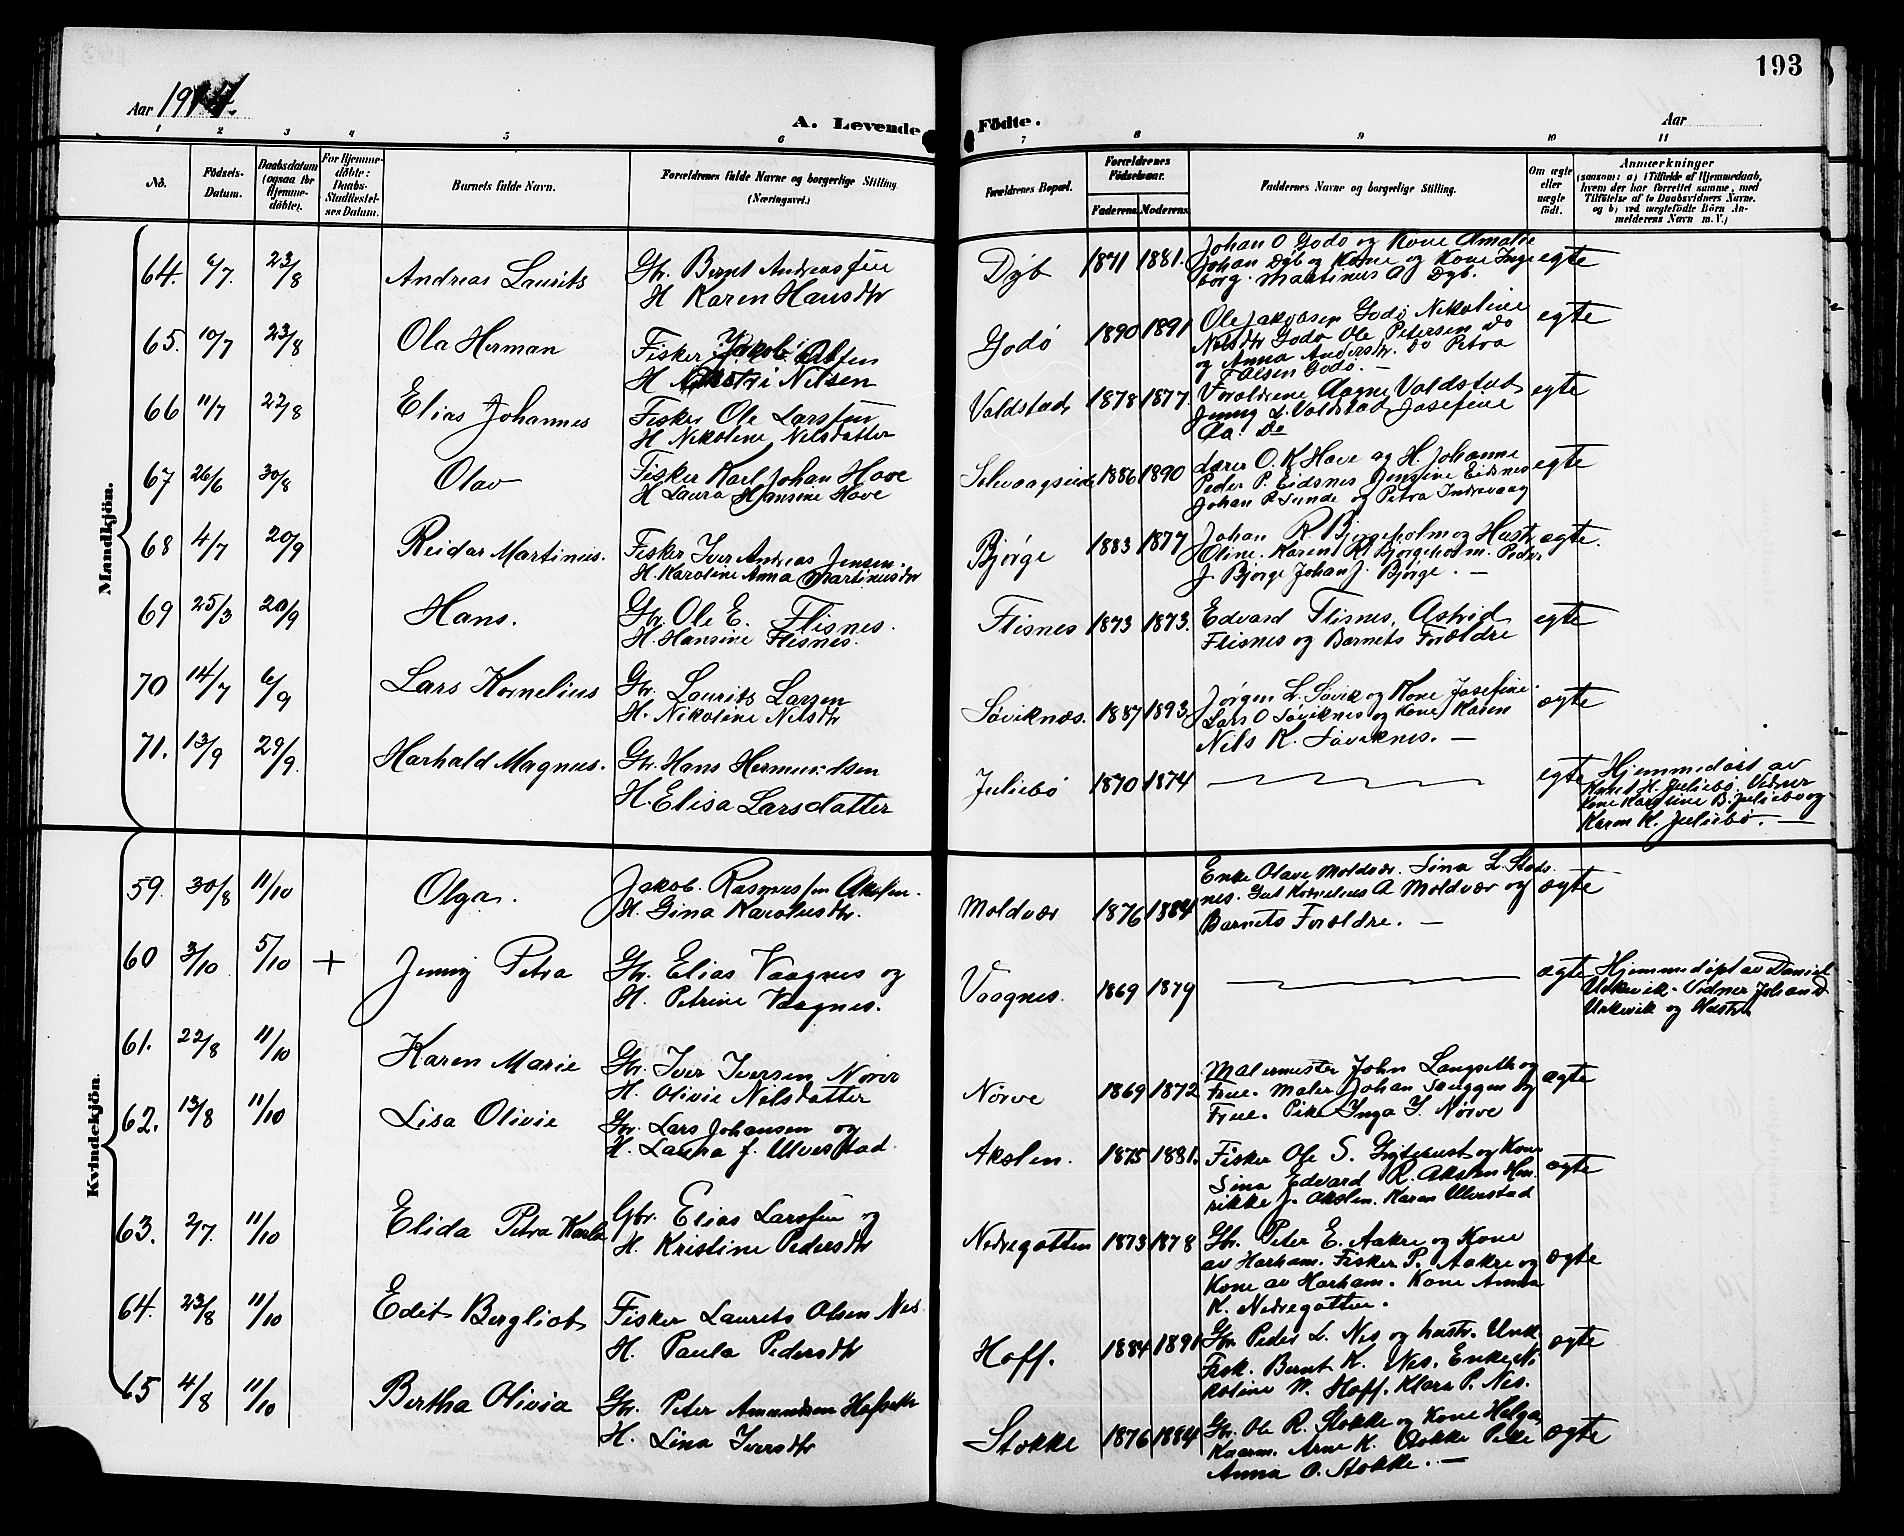 193
Aar 1914.
A. Levende Födte.
Aar
1 2 3 4 5 6 7 8 9 10 11
No.
Födsels-Datum.
Daabsdatum (ogsaa for Hjemmedöbte).
For Hjemmedöbte: Daabs-Stadfæstelses Datum.
Barnets fulde Navn.
Forældrenes fulde Navne og borgerlige Stilling (Næringsvei.)
Forældrenes Bopæl.
Forældrenes Födselsaar.
Faderens. Moderens.
Faddernes Navne og borgerlige Stilling.
Om ægte eller uægte födt.
Anmærkninger
(saasom: a) i Tilfælde af Hjemmedaab,
hvem der har forrettet samme, med
Tilföielse af to Daabsvidners Navne.
og b) ved uægtefödte Börn An-
melderens Navn m. V.)
Mandkjön.
64. 6/7. 23/8 Andreas Laurits
Gbr. Bernt Andreassen
H Karen Hansdtr
Dyb 1871 1881.
Johan O Godø og Kone Amalie
Johan Dyb og Kone og Kone Inge
borg. Martinus A Dyb.
egte
65. 10/7 23/8 Ola Herman
Fisker Jakob Olsen
H Nilsen
Godø 1890 1891
Ole Jakobsen Godø Nikoline
Nilsdtr Godø Ole Petersen do
og Anna Andersdtr. do Petra
Olsen Godø. —
egte
66 11/7 22/8 Elias Johannes
Fisker Ole Larssen
H Nikoline Nilsdatter
Valdstad 1878 1877
Foraldrene Aagne Valdstad
Jenny L. Valdstad Josefine
do
egte
67 26/6 30/8 Olav
Fisker Karl Johan Hove
H Laura Hansine Hove
1886 1890
Lærer O. K. Hove og H. Johanne
Peder P. Eidsnes Jensine Eidsnes
Johan P. Sunde og Petra Indrevaag
egte
68 4/7 20/9 Reidar Martinus.
Fisker Iver Andreas Jensen.
H. Karoline Anna Martinusdtr
Bjørge 1883 1877
Johan R Bjørgeholm og Hustr
Oline. Karen R. Bjørgeholm. Peder
J. Bjørge Johan J. Bjørge. —
egte.
69 25/3 20/9 Hans.
Gbr. Ole E. Flisnes.
H. Hansine Flisnes.
Flisnes 1873 1873.
Edvard Flisnes, Astrid
Flisnes og Barnets Forældre
egte
70 14/7 6/9 Lars Kornelius
Gbr. Laurits Larsen
H. Nikoline Nilsdtr
Søviknæs. 1887 1893.
Jørgen L. Søvik og Kone Josefine
Lars O Søviknes og Kone Karen
Nils K. Søviknes. —
ægte
71. 13/9 29/9. Harhald Magnus.
Gbr. Hans Hermundsen
H. Elisa Larsdatter
Juliebø 1870 1874
egte
Hjemmedøpt av
Knut H. Juliebø. Vidner
Kone Karoline B. Juliebø og
Karen K. Juliebø. —
Kvindekjön.
59. 30/8 11/10 Olga.
Jakob Rasmussen Akslen.
H. Gina Karolusdtr.
Moldvær 1876 1884
Enke Olave Moldvær. Sina L. Stads
nes. Gut Kornelius A Moldvær og
Barnets Forældre. —
ægte
60 3/10 5/10 + Jenny Petra
Gbr. Elias Vaagnes og
H. Petrine Vaagnes.
Vaagnes. 1869 1879
ægte
Hjemmedøpt av Daniel
Urkevik. Vidner Johan D
Urkevik og Hustru
61. 22/8 11/10 Karen Marie
Gbr. Iver Iversen Nørve
H. Olivie Nilsdatter
Nørve 1869 1872
Malermester John Langseth og
Frue. Maler Johan og
Frue. Pike Inga I. Nørve
ægte
62. 13/8 11/10 Lisa Olivie
Gbr. Lars Johansen og
H. Laura J. Ulvestad.
Akslen. 1875 1881.
Fisker Ole S. og Kone
Sina Edvard R. Akslen Hen
rikke J. Akslen. Karen Ulvestad
ægte
63. 2/7. 11/10 Elida Petra Karla
Gbr. Elias Larssen og
H. Kristine Pedersdtr
Nedregotten 1873 1878
Gbr. Peter E. Aakre og Kone
av Harham. Fisker P. Aakre og
Kone av Harham. Kone Anna
K. Nedregotten.
ægte
64. 23/8 11/10 Edit Bergliot
Fisker Laurits Olsen Nes.
H. Paula Pedersdtr
Hoff. 1884 1891
Gbr. Peder L. Nes og hustr. Unk.
Fisk. Bernt K. Nes. Enke Ni
koline N. Hoff. Klara P. Nes.
ægte
65 4/8 11/10 Bertha Olivia
Gbr. Peter Amundsen
H. Lina Iversdtr
Stokke 1876 1884
Gbr. Ole R. Stokke og Kone Helga,
Arne K. Stokke Pike
Anna O. Stokke. —
ægte